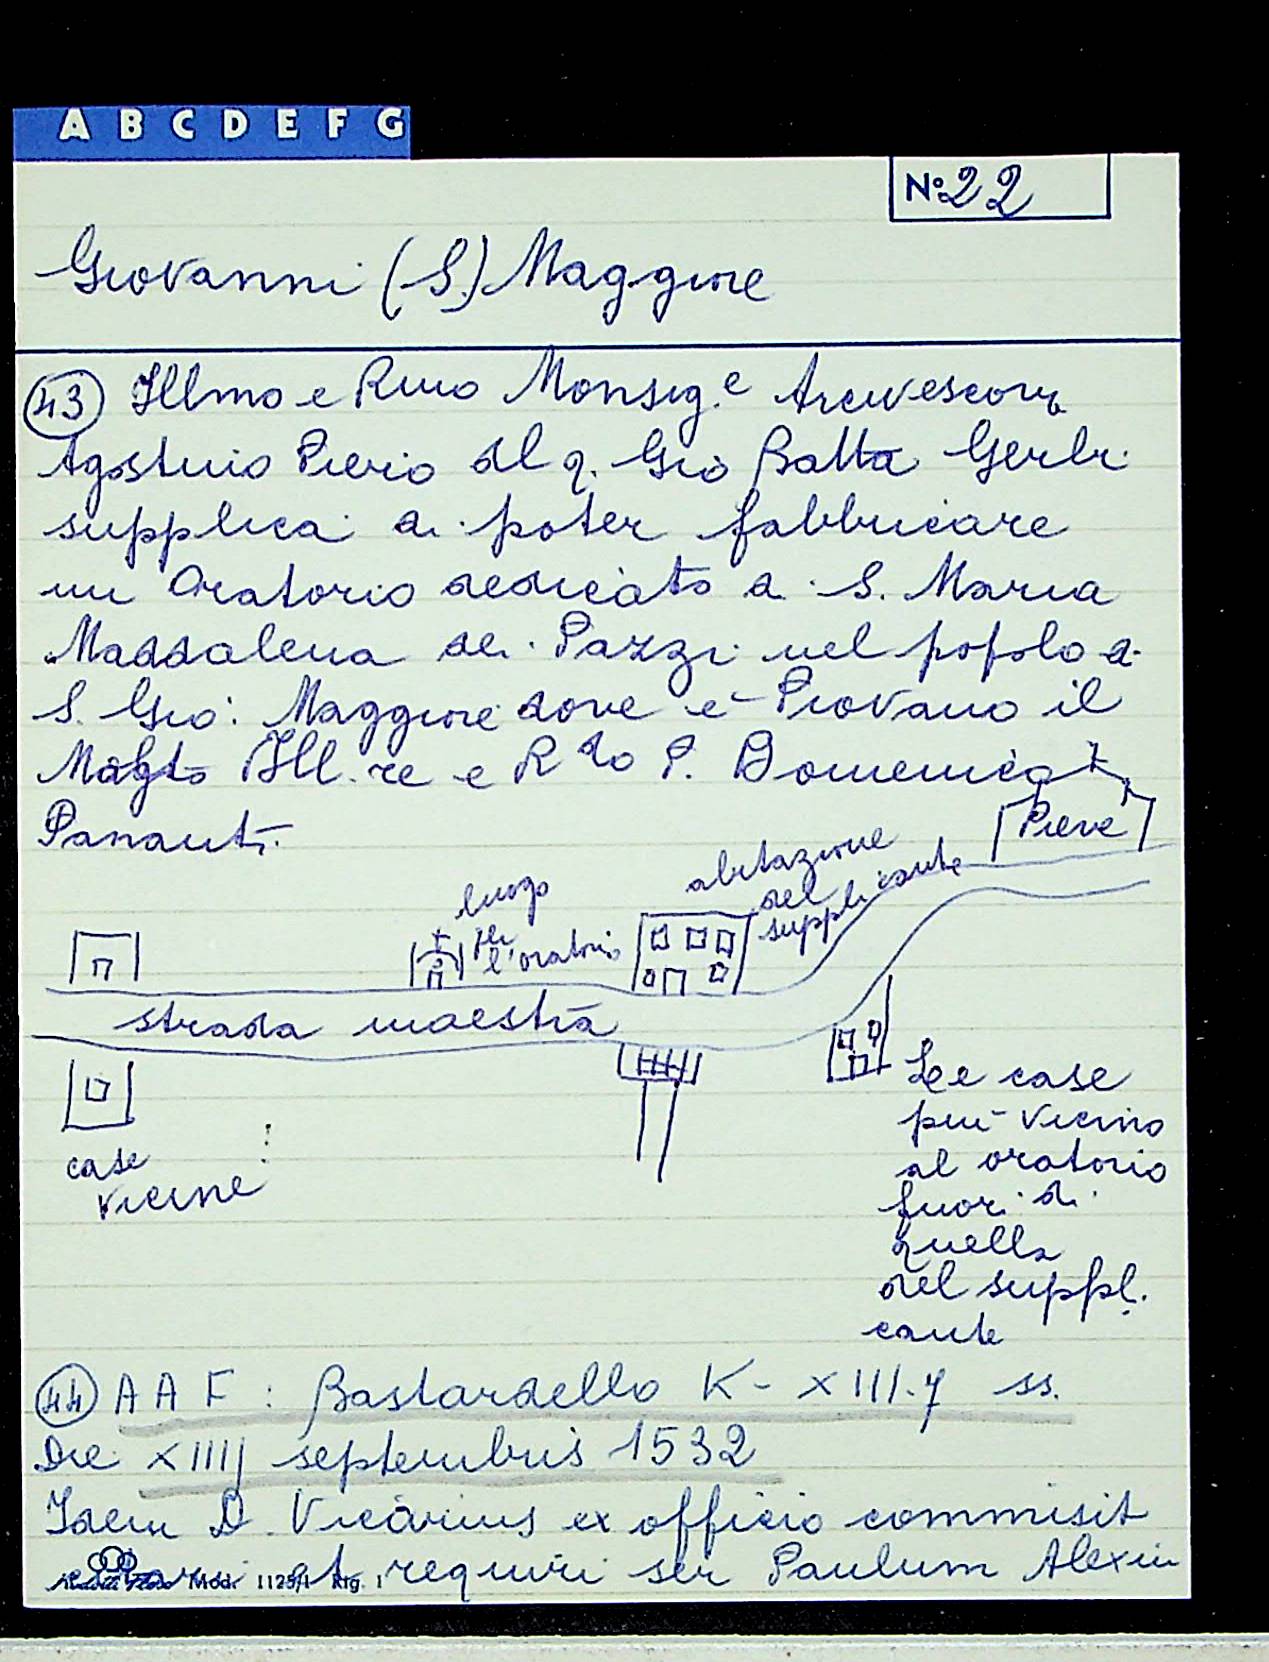 A B C D E F G
Nº 22
Giovanni (S.) Maggiore
43 Illmo e Rmo Monsig.e Arcivescovo
Agostino Pierio del q. Gio Batta Gerbi
supplica di poter fabbricare
un Oratorio dedicato a S. Maria
Maddalena dei Pazzi nel popolo di
S. Gio: Maggiore dove è Piovano il
Molto Ill.re e R do P. Domenico
Pananti.
Pieve
abitazione
del
supplicante
luogo
per
l'oratorio
strada maestra
case
vicine
Le case
più vicino
al oratorio
fuori di
quella
del suppli
cante
44 AAF: Bastardello K - XIII.7 ss.
Die XIIIJ septembris 1532
Idem D. Vicarius ex officio commisit
et requiri ser Paulum Alexii
Mod. 1125/1 Rig. 1